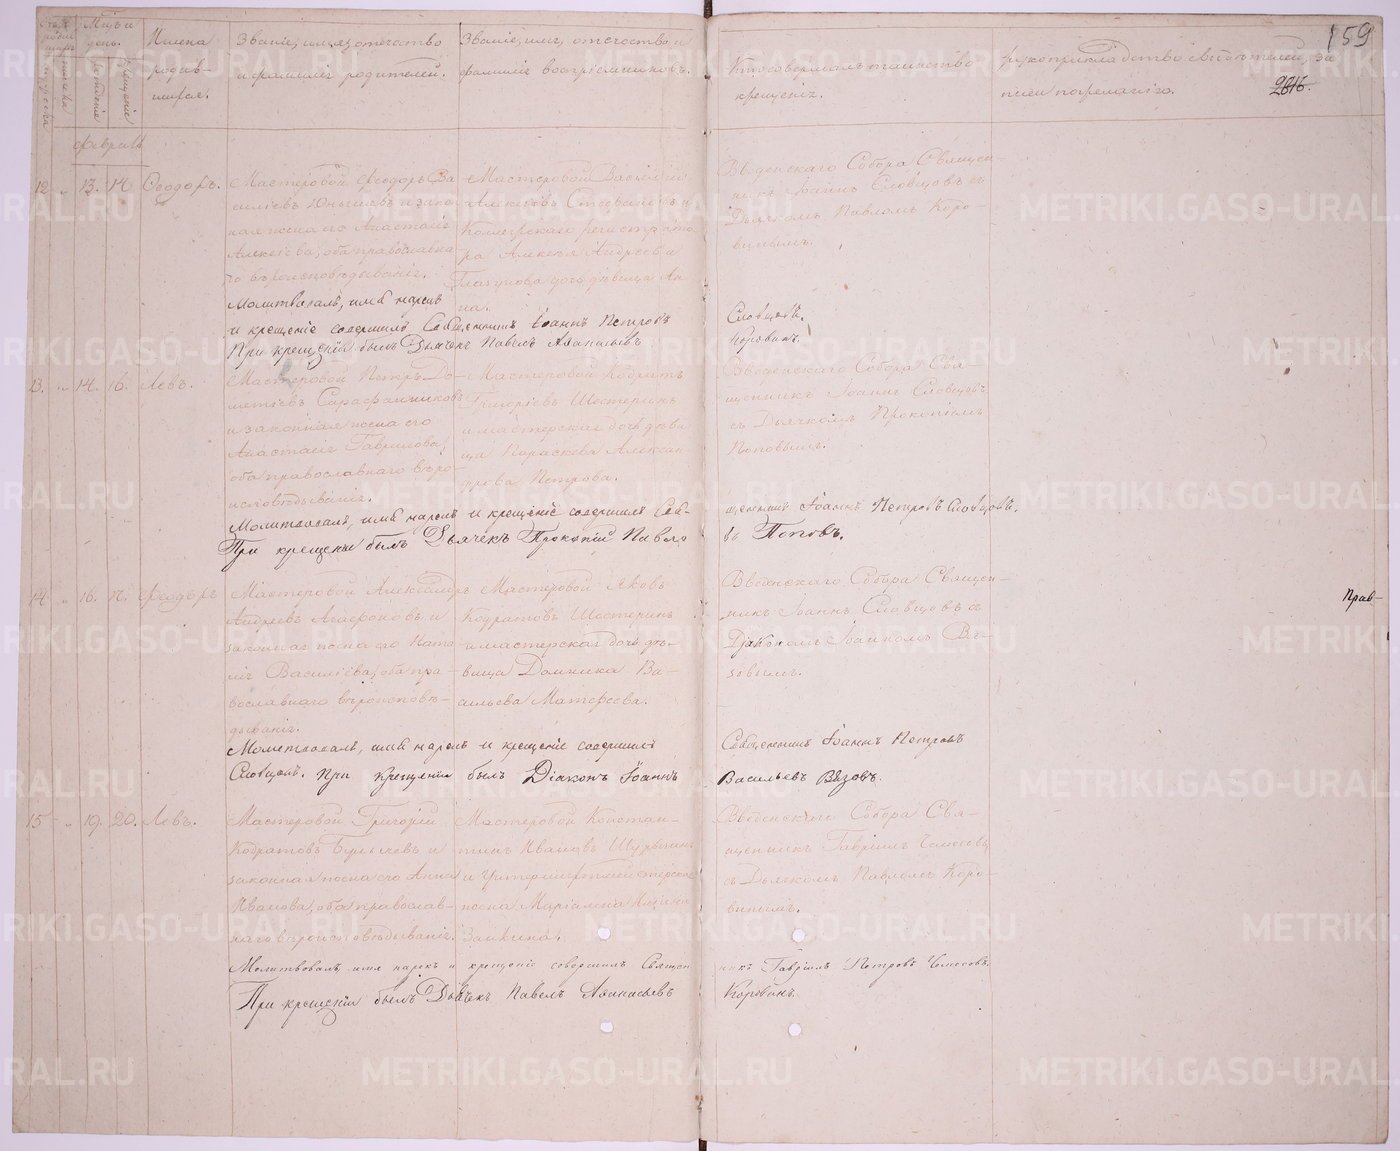 159
2816.
Мѣсяцъ и день.
Имена родив-
шихся.
Званіе, имя, отечество
и фамилія родителей.
Званіе, имя, отечество и
фамилія воспріемниковъ.
Кто совершалъ таинство
крещенія.
Рукоприкладство свидѣтелей за-
писи по желанію.
Февраль
12. " 13. 14. Ѳеодоръ.
Мастеровой Ѳеодоръ Ва-
силіевъ и зако-
нная жена его Анастасія
Алексѣева, оба православна-
го вѣроисповѣдыванія.
Мастеровой Василій
Алексѣевъ и
регистрато-
ра Алексѣя Андреева
Глазунова дочь дѣвица Ан-
на.
Введенскаго Собора Священ-
никъ Іоаннъ Словцовъ съ
Дьячкомъ Павломъ Коро-
винымъ.
Молитвовалъ, имя нарекъ
и крещеніе совершилъ Священникъ Іоаннъ Петровъ
Словцовъ.
При крещеніи былъ Дьячекъ Павелъ Аѳанасьевъ
Коровинъ.
13. " 14. 16. Левъ.
Мастеровой Петръ До-
метіевъ Сарафанниковъ
и законная жена его
Анастасія Гаврилова,
оба православнаго вѣро-
исповѣдыванія.
Мастеровой Кодратъ
Григоріевъ Шестеринъ
и мастерская дочь дѣви-
ца Параскева Алексан-
дрова Петрова.
Введенскаго Собора Свя-
щенникъ Іоаннъ Словцовъ
съ Дьячкомъ Прокопіемъ
Поповымъ.
Молитвовалъ, имя нарекъ и крещеніе совершилъ Свя-
щенникъ Іоаннъ Петровъ Словцовъ.
При крещеніи былъ Дьячекъ Прокопій Павло-
въ Поповъ.
14. " 16. 17. Ѳеодоръ
Мастеровой Александръ
Андреевъ Агафоновъ и
законная жена его Ната-
лія Василіева, оба пра-
вославнаго вѣроисповѣ-
дыванія.
Мастеровой Яковъ
Кодратовъ Шестеринъ
и мастерская дочь дѣ-
вица Домника Ва-
сильева Матѳеева.
Введенскаго Собора Священ-
никъ Іоаннъ Словцовъ съ
Діакономъ Іоанномъ Вя-
зовымъ.
Прав-
Молитвовалъ, имя нарекъ и крещеніе совершилъ
Священникъ Іоаннъ Петровъ
Словцовъ. При крещеніи былъ Діаконъ Іоаннъ
Васильевъ Вязовъ.
15 " 19. 20. Левъ.
Мастеровой Григорій
Кодратовъ Булычевъ и
законная жена его Анна
Иванова, оба православ-
наго вѣроисповѣдыванія.
Мастеровой Констан-
тинъ Ивановъ
и Унтершихтмейстерская
жена Маріамна
Заикина.
Введенскаго Собора Свя-
щенникъ Гавріилъ
съ Дьячкомъ Павломъ Коро-
винымъ.
Молитвовалъ, имя нарекъ и крещеніе совершилъ Священ-
никъ Гавріилъ Петровъ
При крещеніи былъ Дьячекъ Павелъ Аѳанасьевъ
Коровинъ.
METRIKI.GASO-URAL.RU